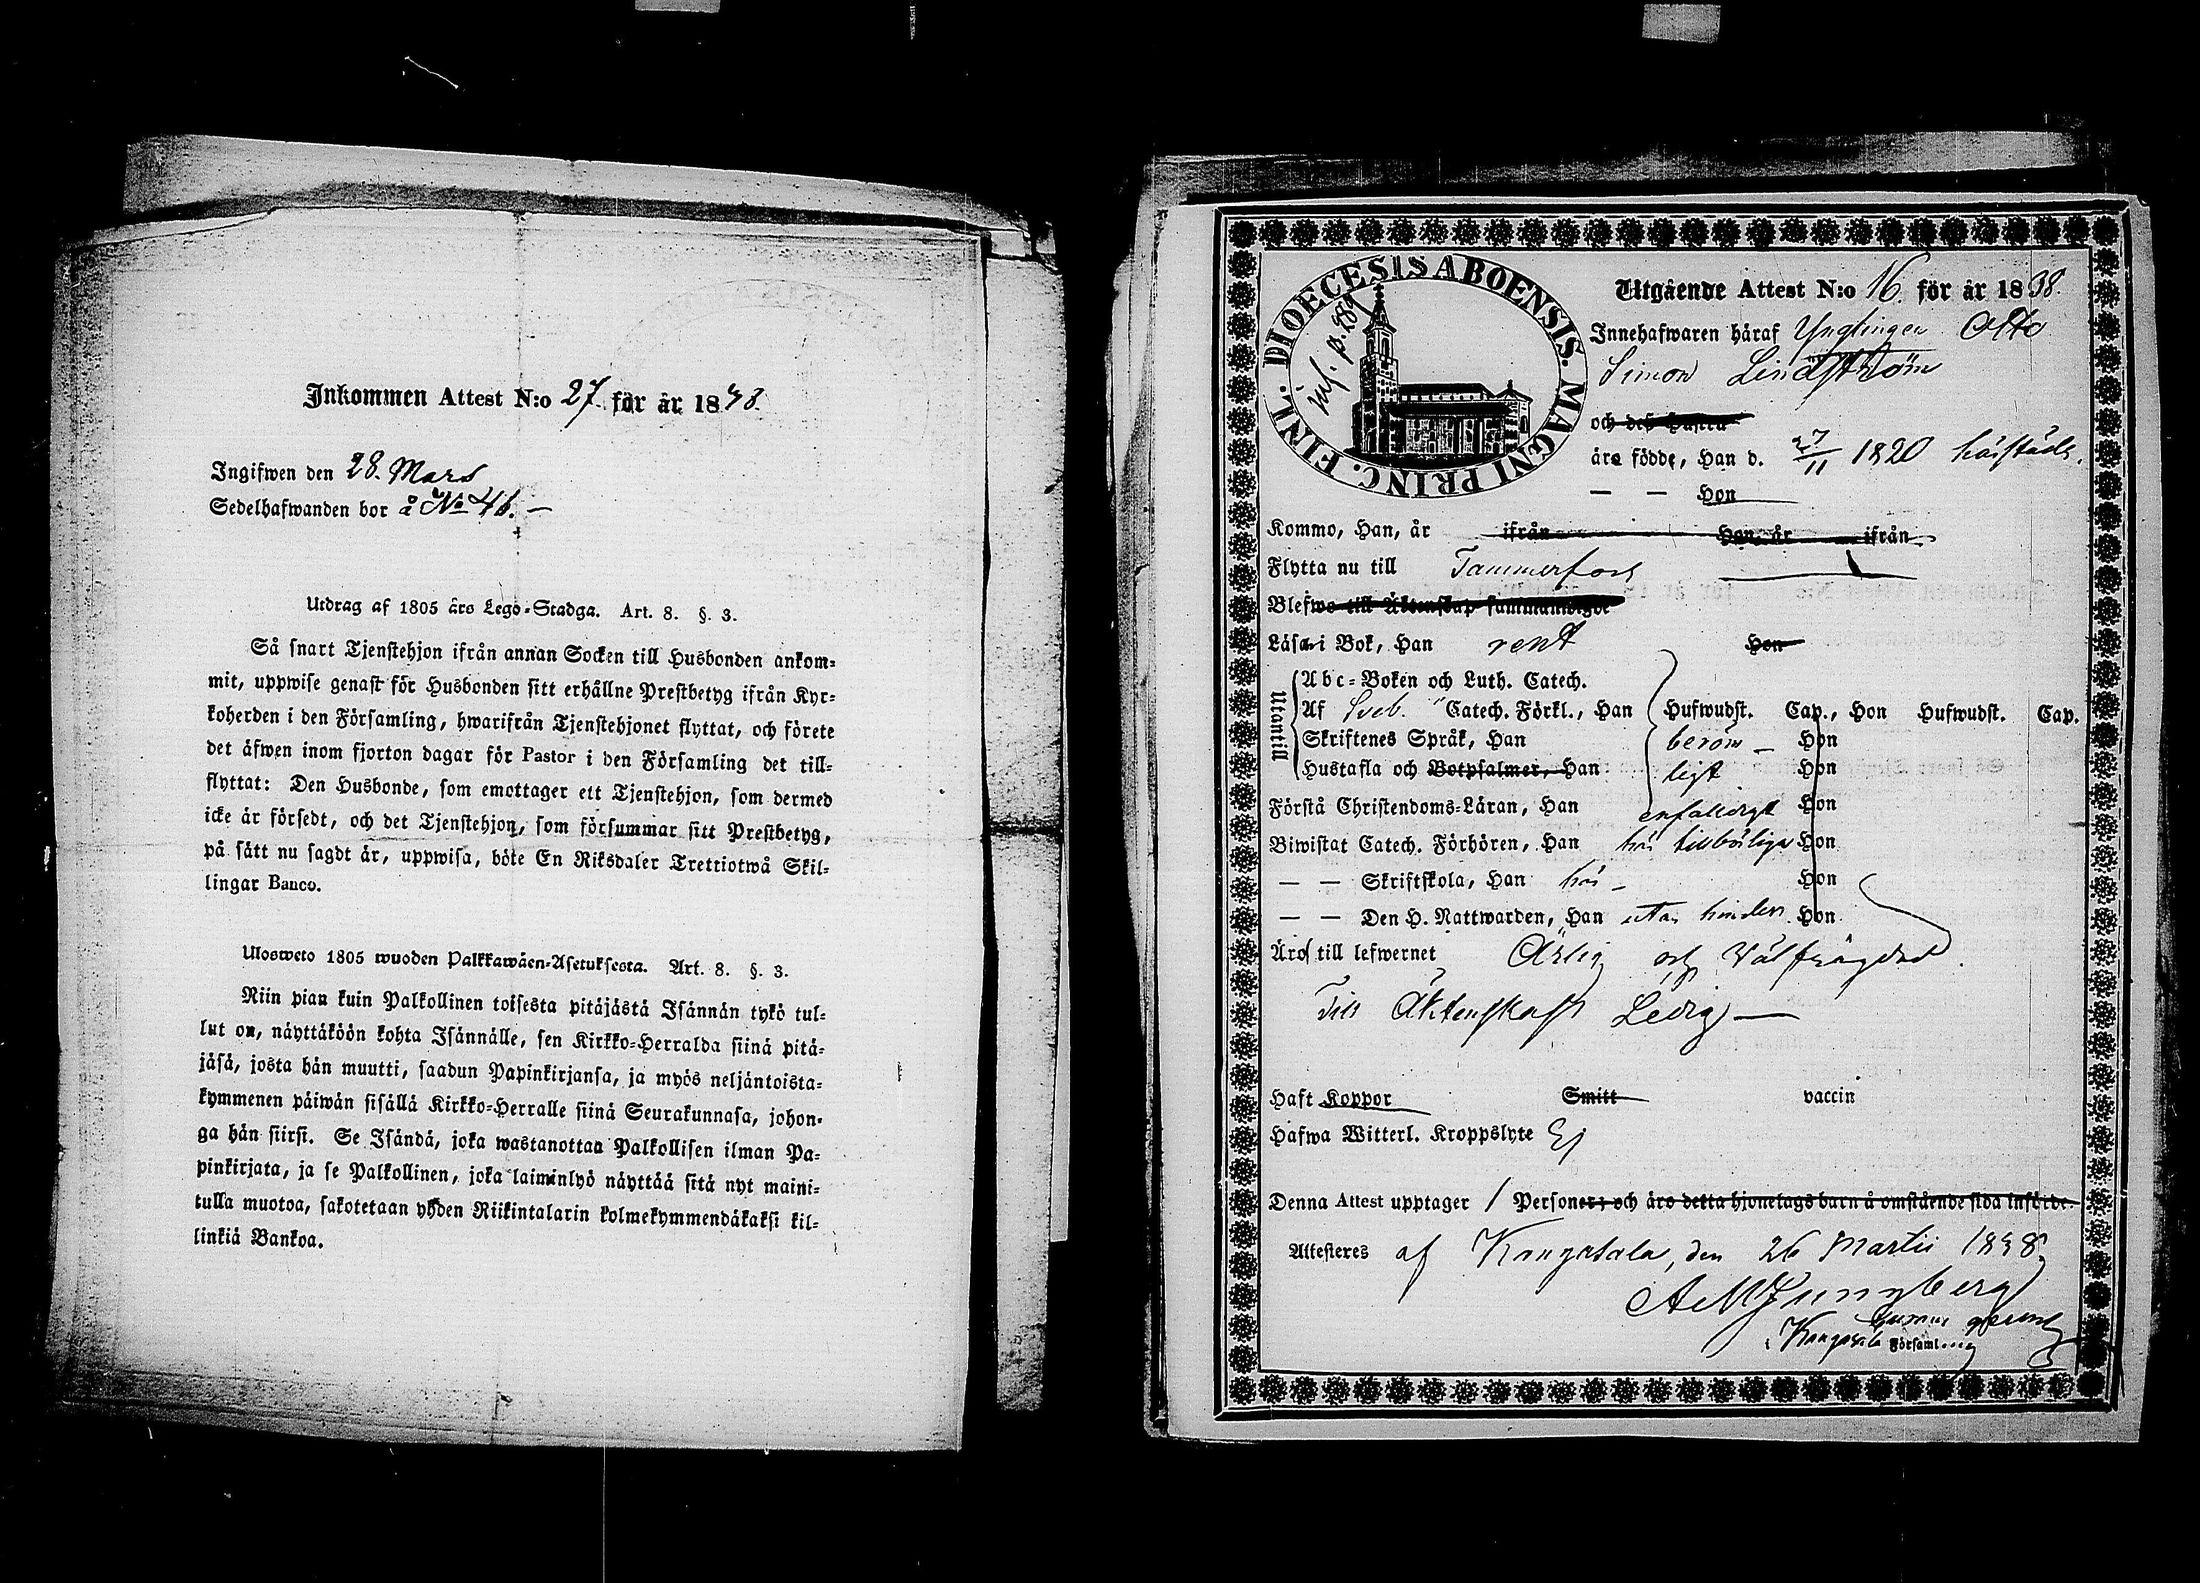 Inkommen Attest N:o 27 för år 1838.
Ingifwen den 28. Mars
Sedelhafwanden bor å No 46. —
Utdrag af 1805 års Lego-Stadga. Art. 8. §. 3.
Så snart Tjenstehjon ifrån annan Socken till Husbonden ankom-
mit, uppwise genast för Husbonden sitt erhållne Prestbetyg ifrån Kyr-
koherden i den Församling, hwarifrån Tjenstehjonet flyttat, och förete
det äfwen inom fjorton dagar för Pastor i den Församling det till-
flyttat: Den Husbonde, som emottager ett Tjenstehjon, som dermed
icke är försedt, och det Tjenstehjon, som försummar sitt Prestbetyg,
på sätt nu sagdt är, uppwisa, böte En Riksdaler Trettiotwå Skil-
lingar Banco.
Ulosweto 1805 wuoden Palkkawäen-Asetuksesta. Art. 8. §. 3.
Niin pian kuin Palkollinen toisesta pitäjästä Isännän tykö tul-
lut on, näyttäköön kohta Isännälle, sen Kirkko-Herralda siinä pitä-
jäsä, josta hän muutti, saadun Papinkirjansa, ja myös neljäntoista-
kymmenen päiwän sisällä Kirkko-Herralle siinä Seurakunnasa, johon-
ga hän siirsi. Se Isändä, joka wastanottaa Palkollisen ilman Pa-
pinkirjata, ja se Palkollinen, joka laiminlyö näyttää sitä nyt maini-
tulla muotoa, sakotetaan yhden Riikintalarin kolmekymmendäkaksi kil-
linkiä Bankoa.
DIOECESIS ABOENSIS. MAGNI PRINC. FINL.
inf. p. 289
Utgående Attest N:o 16. för år 1838.
Innehafwaren häraf Ynglingen Otto
Simon Lindström
och deß Hustru
äre födde, Han d. 27/11 1820 härstädes.
— — Hon
Kommo, Han, år ifrån Hon, år ifrån
Flytta nu till Tammerfors
Blefwo till Äktenskap sammanwigde
Läsa i Bok, Han rent Hon
Utantill
Abc-Boken och Luth. Catech.
Af Sveb. Catech. Förkl., Han Hufwudst. Cap., Hon Hufwudst. Cap.
Skriftenes Språk, Han beröm- Hon
Hustafla och Botpsalmer, Han ligt Hon
Förstå Christendoms-Läran, Han enfaldigt Hon
Biwistat Catech. Förhören, Han här tillbörligen Hon
— — Skriftskola, Han här — Hon
— — Den H. Nattwarden, Han utan hinder Hon
Äro till lefwernet Ärlig och Välfrägdad.
Till Äktenskap Ledig —
Haft Koppor Smitt vaccin
Hafwa Witterl. Kroppslyte Ej
Denna Attest upptager 1 Personer; och äro detta hjonelags barn å omstående sida införde.
Attesteres af Kangasala, den 26 Martii 1838
Kangasala Församling